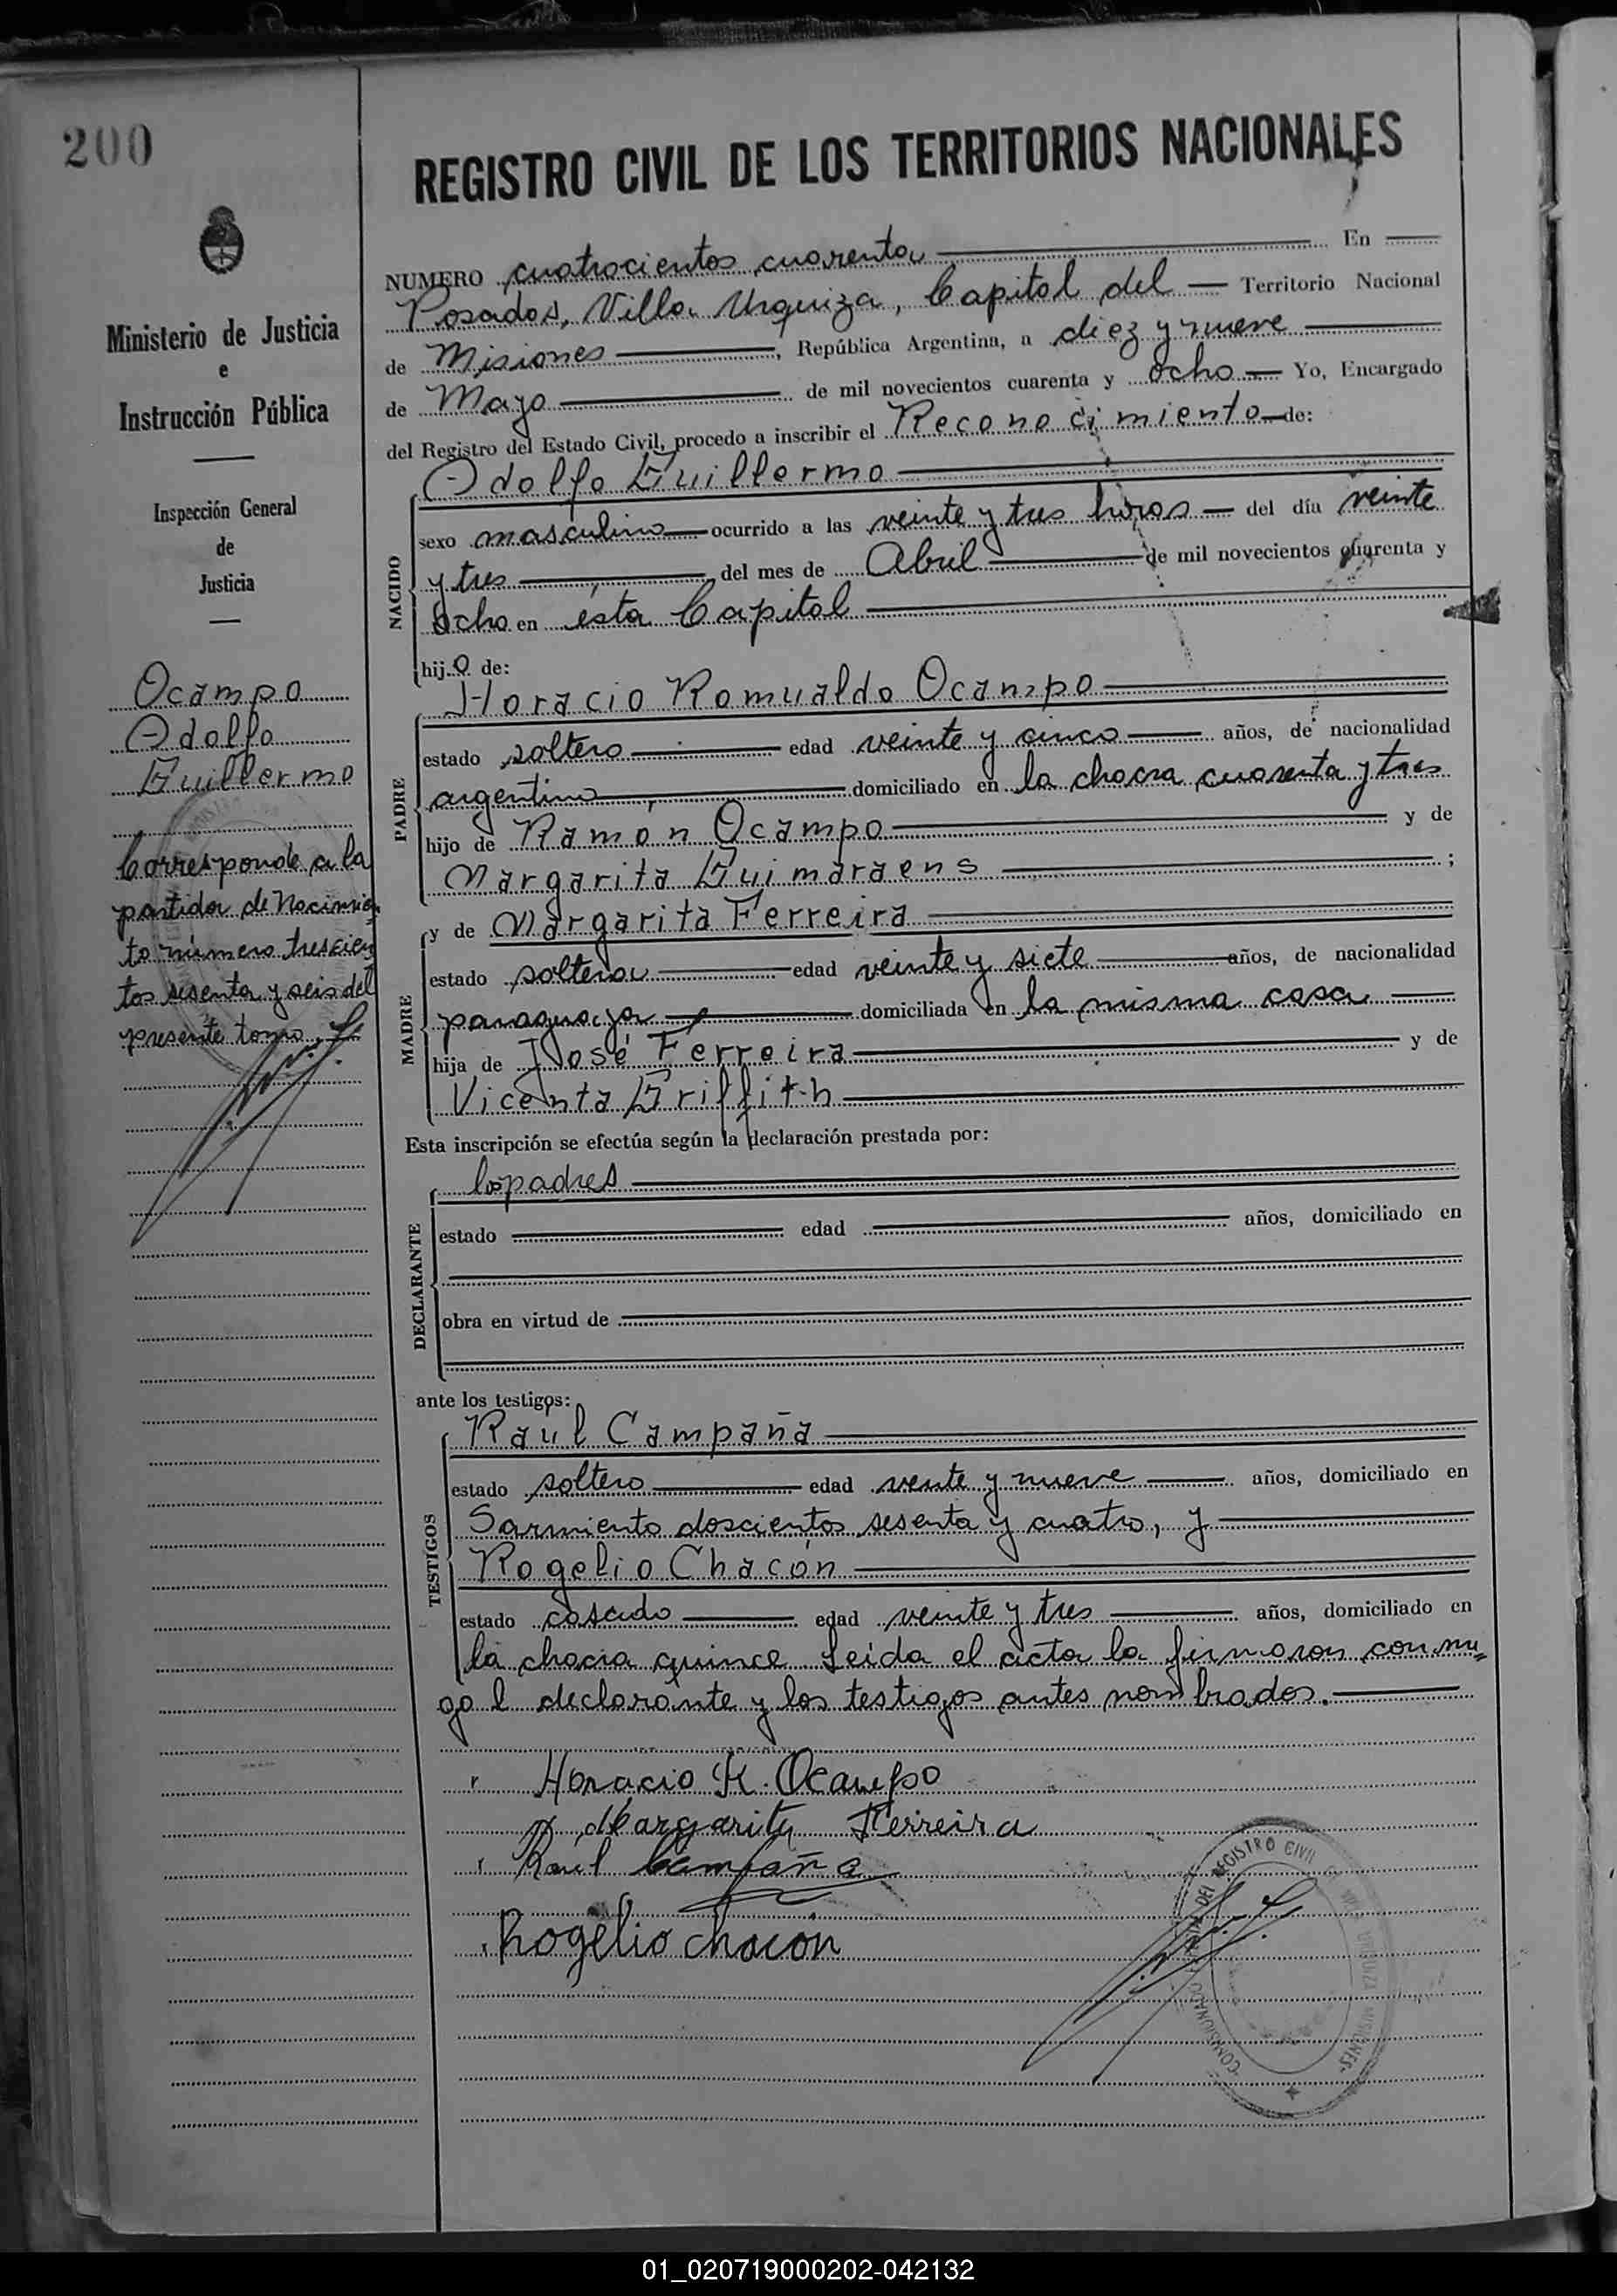 200
REGISTRO CIVIL DE LOS TERRITORIOS NACIONALES
Ministerio de Justicia
e
Instrucción Pública
Inspección General
de
Justicia
Ocampo
Adolfo
Guillermo
Corresponde a la
partida de Nacimien
to número trescien
tos sesenta y seis del
presente tomo.
NUMERO cuatrocientos cuarenta En
Posadas, Villa Urquiza, Capital del Territorio Nacional
de Misiones, República Argentina, a diez y nueve
de Mayo de mil novecientos cuarenta y ocho Yo, Encargado
del Registro del Estado Civil, procedo a inscribir el Reconocimiento de:
NACIDO
Adolfo Guillermo
sexo masculino ocurrido a las veinte y tres horas del día veinte
y tres del mes de Abril de mil novecientos cuarenta y
ocho en ésta Capital
hijo de:
PADRE
Horacio Romualdo Ocampo
estado soltero edad veinte y cinco años, de nacionalidad
argentina domiciliado en la chacra cuarenta y tres
hijo de Ramón Ocampo y de
Margarita Guimaraens ;
MADRE
y de Margarita Ferreira
estado soltera edad veinte y siete años, de nacionalidad
paraguaya domiciliada en la misma casa
hija de José Ferreira y de
Vicenta Griffith
Esta inscripción se efectúa según la declaración prestada por:
DECLARANTE
los padres
estado edad años, domiciliado en
obra en virtud de
ante los testigos:
TESTIGOS
Raúl Campaña
estado soltero edad veinte y nueve años, domiciliado en
Sarmiento doscientos sesenta y cuatro, y
Rogelio Chacón
estado casado edad veinte y tres años, domiciliado en
la chacra quince Leída el acta la firmaron conmi=
go l declarante y los testigos antes nombrados.
Horacio R. Ocampo
Margarita Ferreira
Raúl Campaña
Rogelio Chacón
DEL REGISTRO CIVIL
COMISIONADO
MISIONES
01_020719000202-042132